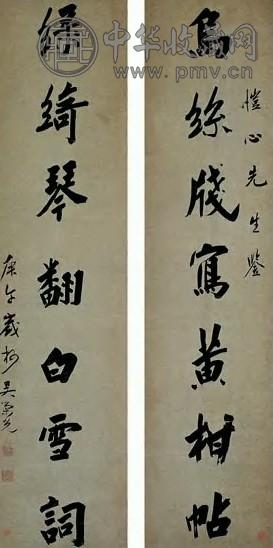 中华收藏网
www.pmv.cn
愷心先生鑒
烏絲牋寫黃柑帖
綠綺琴翻白雪詞
庚午歲杪吳榮光